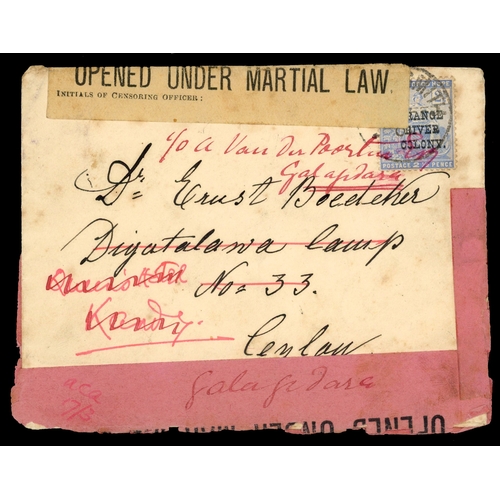 OPENED UNDER MARTIAL LAW.
INITIALS OF CENSORING OFFICER:
ORANGE
RIVER
COLONY.
POSTAGE 2½ PENCE
c/o A Van Der Poorten
Galagedara
Dr. Ernst Boedeker
Diyatalawa Camp
No= 33.
Kandy
Ceylon
Galagedara
aca
17/3
OPENED UNDER MAR